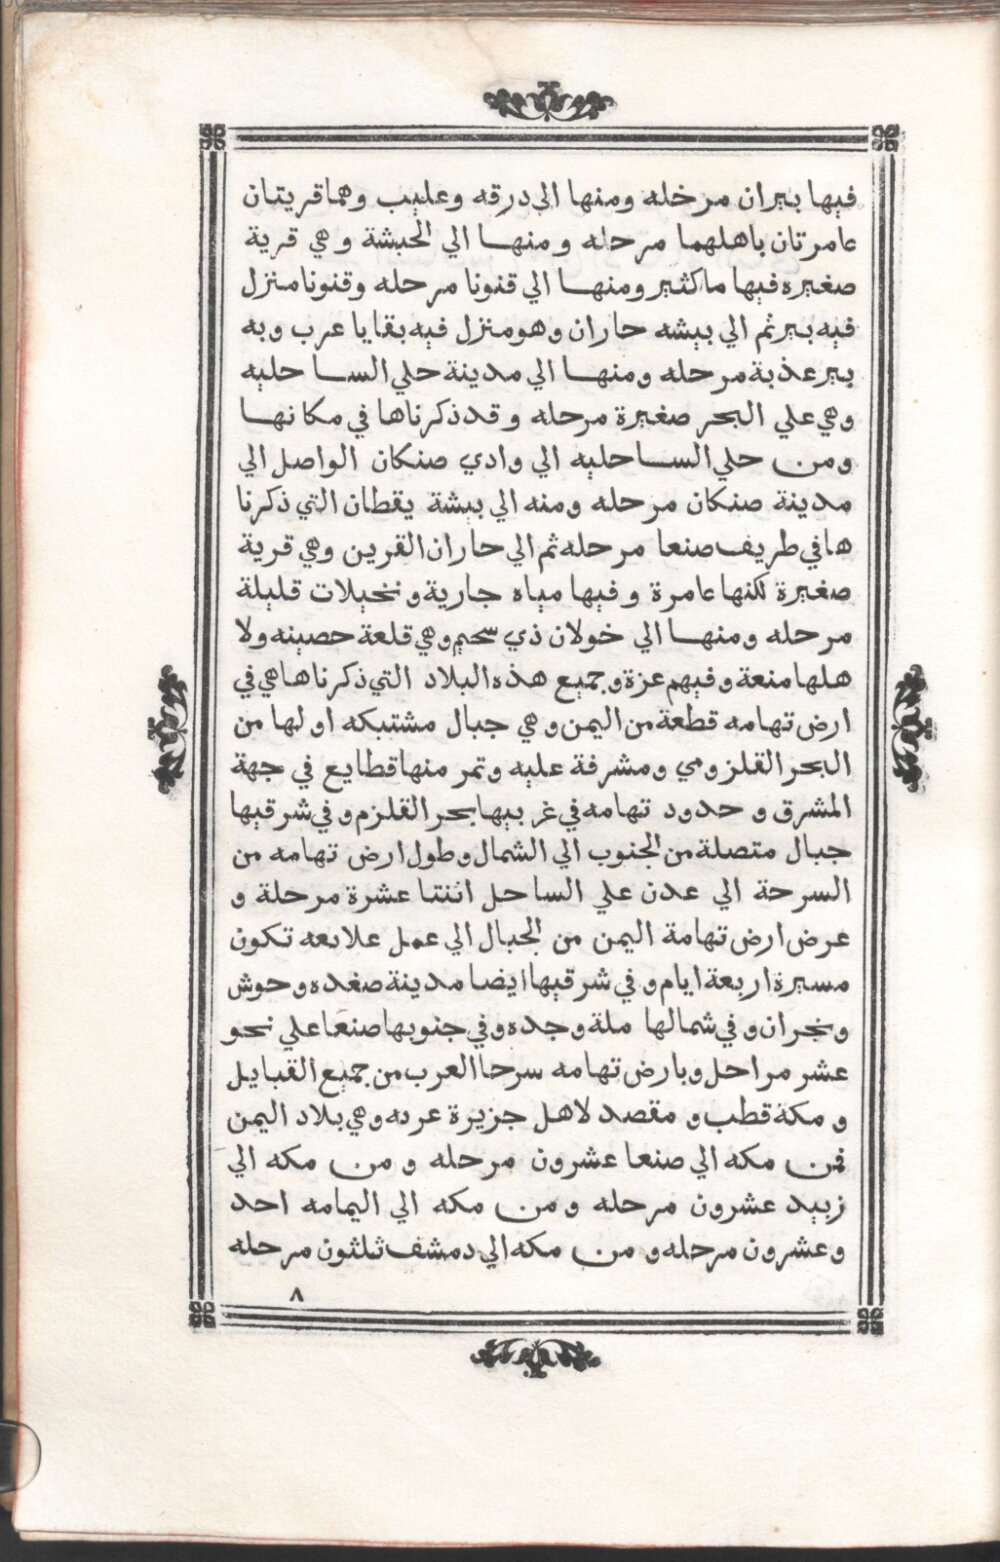 فيها بيران مرخله ومنها الي درقه وعليب وهما قريتان
عامرتان باهلهما مرحله ومنها الي الحبشة وهي قرية
صغيره فيها ما كثير ومنها الي قنونا مرحله وقنونا منزل
فيه بير ثم الي بيشه حاران وهو منزل فيه بقايا عرب وبه
بير عذبة مرحله ومنها الي مدينة حلي الساحليه
وهي علي البحر صغيرة مرحله وقد ذكرناها في مكانها
ومن حلي الساحليه الي وادي صنكان الواصل الي
مدينة صنكان مرحله ومنه الي بيشة يقطان التي ذكرنا
ها في طريف صنعا مرحله ثم الي حاران القرين وهي قرية
صغيرة لكنها عامرة وفيها مياه جارية ونخيلات قليلة
مرحله ومنها الي خولان ذي سحيم وهي قلعة حصينه ولا
هلها منعة وفيهم عزة وجميع هذه البلاد التي ذكرناها هي في
ارض تهامه قطعة من اليمن وهي جبال مشتبكه اولها من
البحر القلزومي ومشرفة عليه وتمر منها قطايع في جهة
المشرق وحدود تهامه في غربيها بحر القلزم وفي شرقيها
جبال متصلة من الجنوب الي الشمال وطول ارض تهامه من
السرحة الي عدن علي الساحل اثنتا عشرة مرحلة و
عرض ارض تهامة اليمن من الجبال الي عمل علابعه تكون
مسيرة اربعة ايام وفي شرقيها ايضا مدينة صغده وحوش
ونجران وفي شمالها ملة وجده وفي جنوبها صنعا علي نحو
عشر مراحل وبارض تهامه سرحا العرب من جميع القبايل
ومكة قطب ومقصد لاهل جزيرة عربه وهي بلاد اليمن
فمن مكه الي صنعا عشرون مرحله ومن مكه الي
زبيد عشرون مرحله ومن مكه الي اليمامه احد
وعشرون مرحله ومن مكه الي دمشف ثلثون مرحله
٨